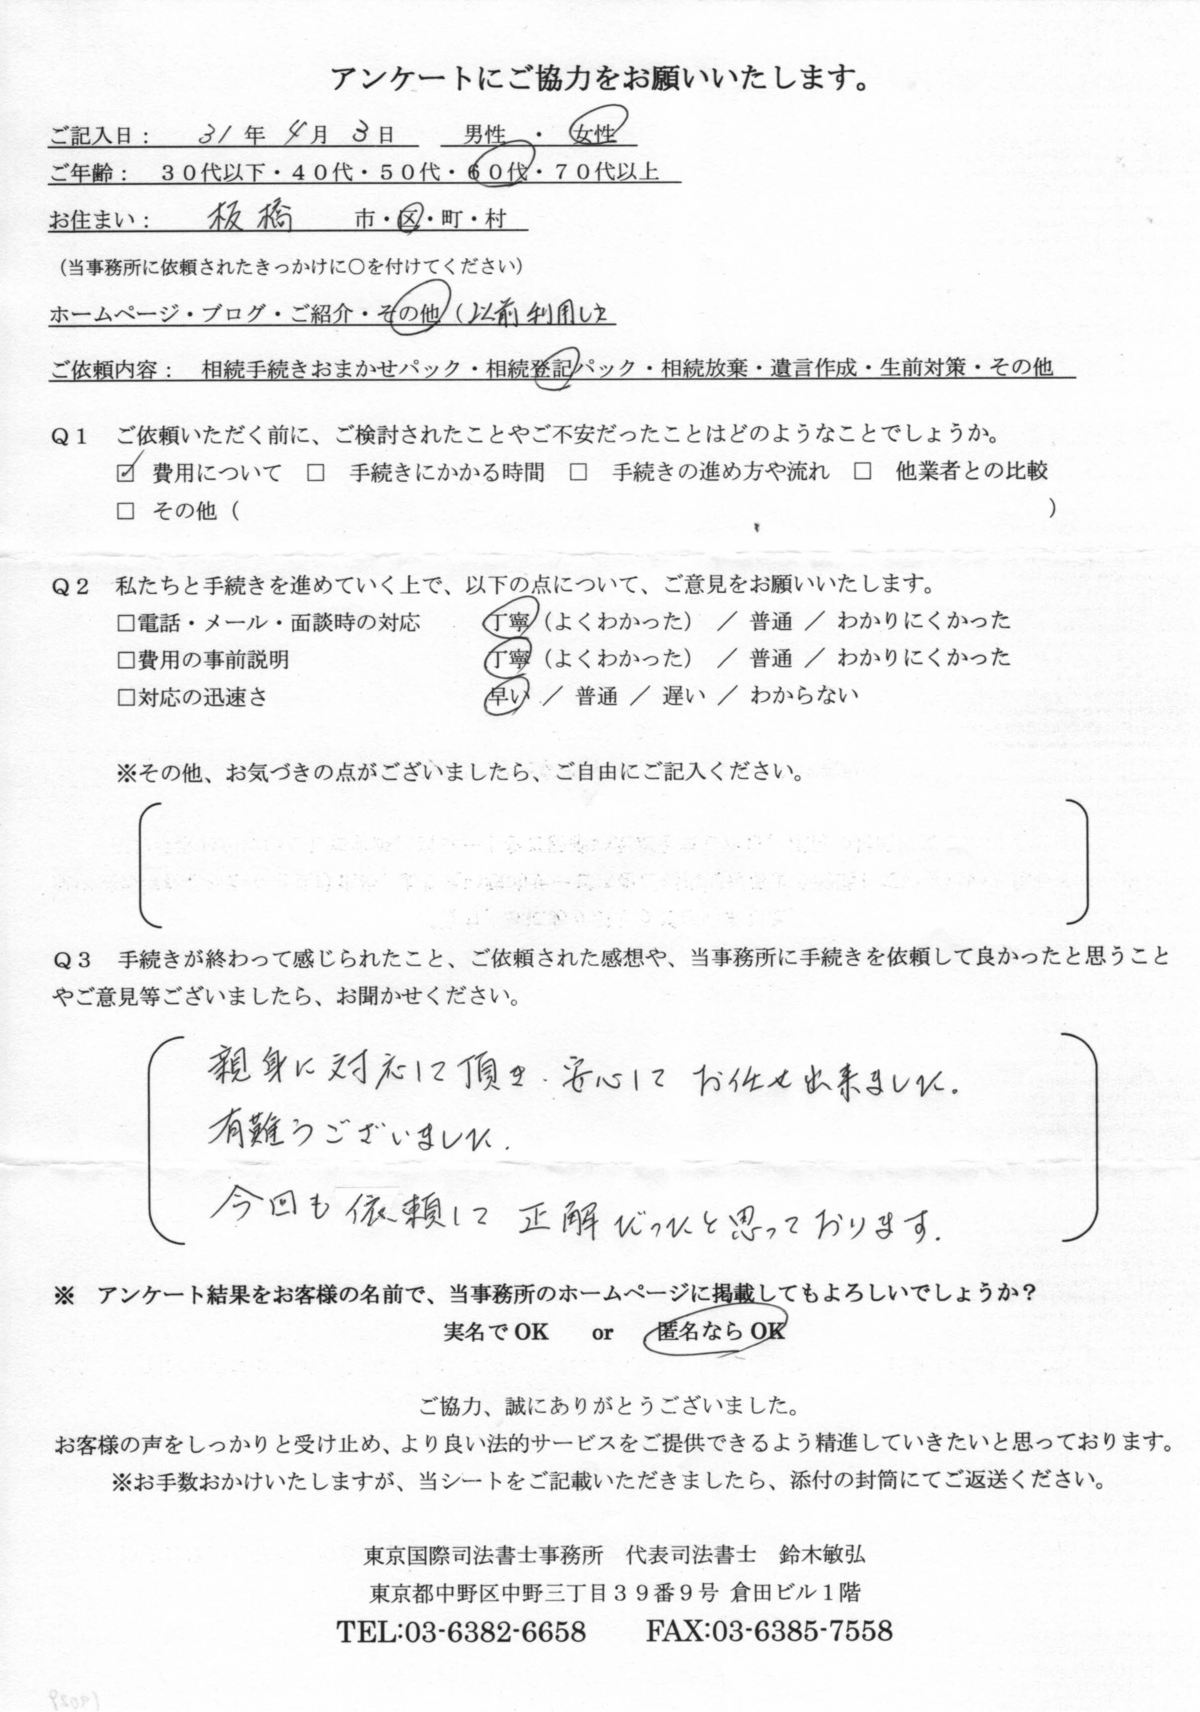 アンケートにご協力をお願いいたします。
ご記入日： 31年 4月 3日 男性 ・ 女性
ご年齢： ３０代以下・４０代・５０代・６０代・７０代以上
お住まい： 板橋 市・区・町・村
（当事務所に依頼されたきっかけに○を付けてください）
ホームページ・ブログ・ご紹介・その他（以前利用した
ご依頼内容： 相続手続きおまかせパック・相続登記パック・相続放棄・遺言作成・生前対策・その他
Ｑ１ ご依頼いただく前に、ご検討されたことやご不安だったことはどのようなことでしょうか。
☑ 費用について □ 手続きにかかる時間 □ 手続きの進め方や流れ □ 他業者との比較
□ その他（ ）
Ｑ２ 私たちと手続きを進めていく上で、以下の点について、ご意見をお願いいたします。
□電話・メール・面談時の対応 丁寧（よくわかった） ／ 普通 ／ わかりにくかった
□費用の事前説明 丁寧（よくわかった） ／ 普通 ／ わかりにくかった
□対応の迅速さ 早い ／ 普通 ／ 遅い ／ わからない
※その他、お気づきの点がございましたら、ご自由にご記入ください。
Ｑ３ 手続きが終わって感じられたこと、ご依頼された感想や、当事務所に手続きを依頼して良かったと思うこと
やご意見等ございましたら、お聞かせください。
親身に対応して頂き、安心してお任せ出来ました。
有難うございました。
今回も依頼して正解だったと思っております。
※ アンケート結果をお客様の名前で、当事務所のホームページに掲載してもよろしいでしょうか？
実名でOK or 匿名ならOK
ご協力、誠にありがとうございました。
お客様の声をしっかりと受け止め、より良い法的サービスをご提供できるよう精進していきたいと思っております。
※お手数おかけいたしますが、当シートをご記載いただきましたら、添付の封筒にてご返送ください。
東京国際司法書士事務所 代表司法書士 鈴木敏弘
東京都中野区中野三丁目３９番９号 倉田ビル１階
TEL:03-6382-6658 FAX:03-6385-7558